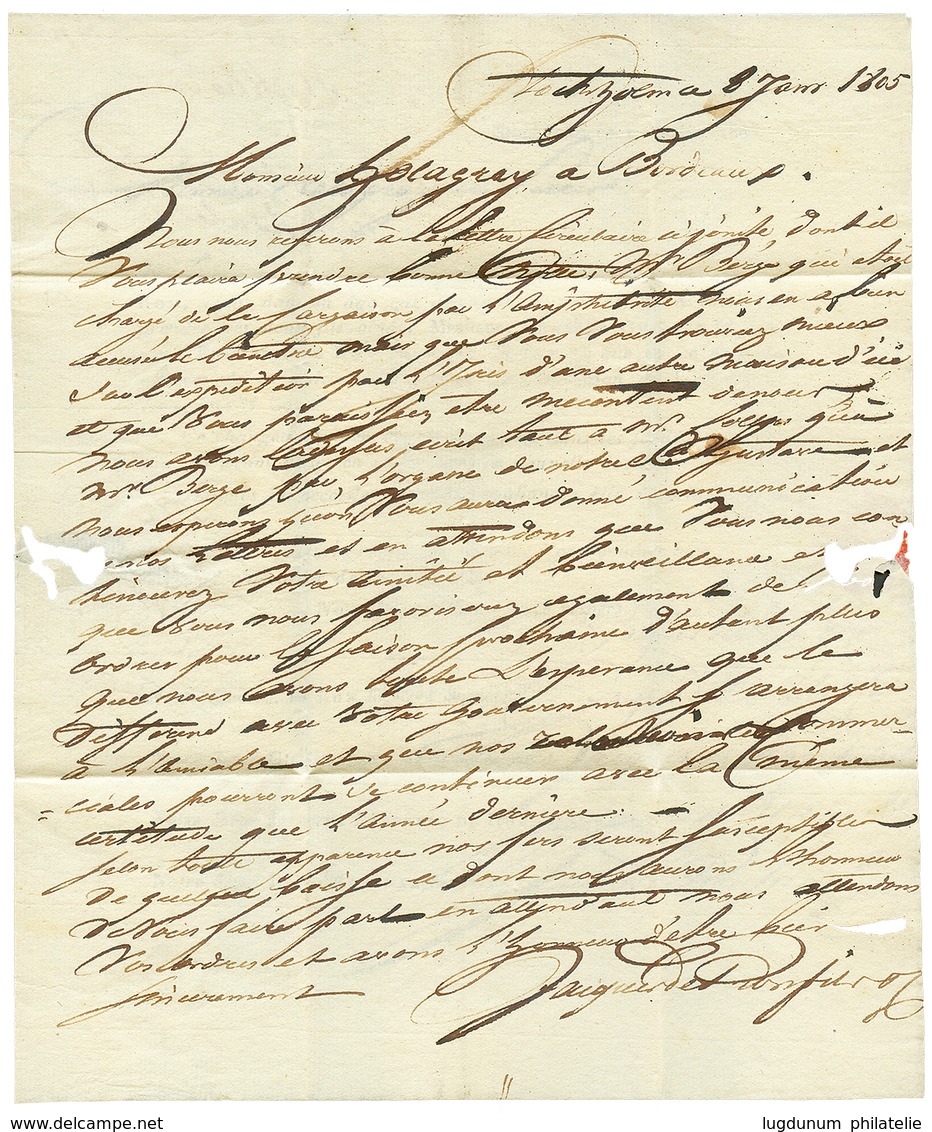 Stockholm ce 8 Janr 1805
Monsieur Delagray a Bordeaux.
Nous nous referons à la lettre Circulaire ci jointe dont il
Vous plaira prendre bonne Notte, Mr Berge qui etoit
chargé de la Cargaison par l'Amphitrite nous en a bien
accusé le bien être mais que Vous Vous trouviez mieux
sur l'expedition par l'Iris d'une autre maison d'ici
et que Vous paraissiez etre mecontent de nous
nous avons la dessus ecrit tant a Mr. qu'a
Mr. Berge par l'organe de notre Gustave et
nous esperons qu'on Vous aura donné communication
de nos Lettres et en attendons que Vous nous con
tinuerez Votre amitié et bienveillance et
que Vous nous favoriserez egalement de
ordres pour la saison prochaine d'autant plus
que nous avons toute l'esperance que le
differend avec Votre Gouvernement s'arrangera
à l'amiable et que nos relations Commer
= ciales pourront se continuer avec la même
certitude que l'Année derniere. —
Selon toute apparence nos fers seront susceptibles
de quelque baisse et dont nous aurons l'honneur
de Vous faire part en attendant nous attendons
Vos ordres et avons l'honneur d'etre bien
sincerement